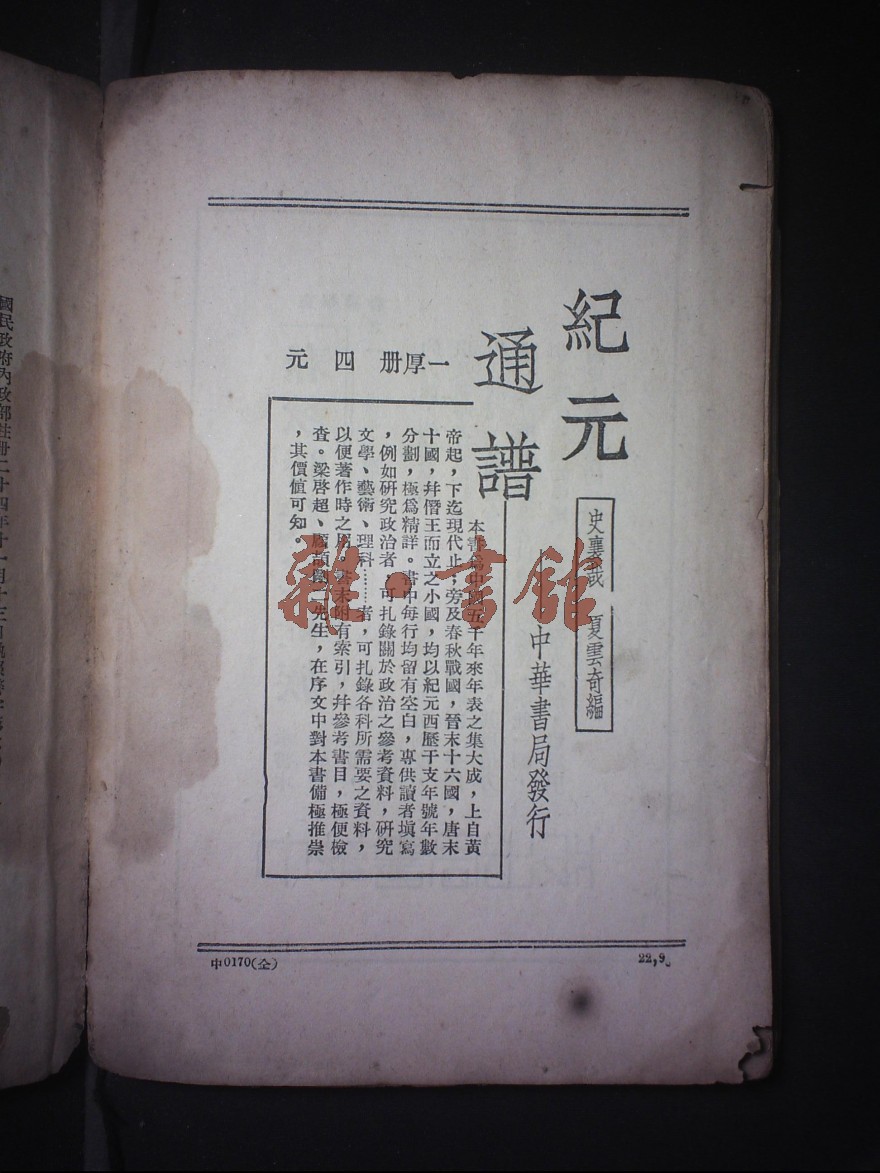 紀元
通譜
史襄哉 夏雲奇編
中華書局發行
一厚册 四元
本書為中國五千年來年表之集大成，上自黃
帝起，下迄現代止；旁及春秋戰國，晉末十六國，唐末
十國，幷僭王而立之小國，均以紀元西歷干支年號年數
分劃，極為精詳。書中每行均留有空白，專供讀者塡寫
，例如研究政治者，可扎錄關於政治之參考資料，研究
文學、藝術、理科……者，可扎錄各科所需要之資料，
以便著作時之用。書末附有索引，幷參考書目，極便檢
查。梁啓超、顧頡剛二先生，在序文中對本書備極推崇
，其價值可知。
中0170(仝)
22,9.
國民政府內政部註册二十四年十一月十三日
雜·書館